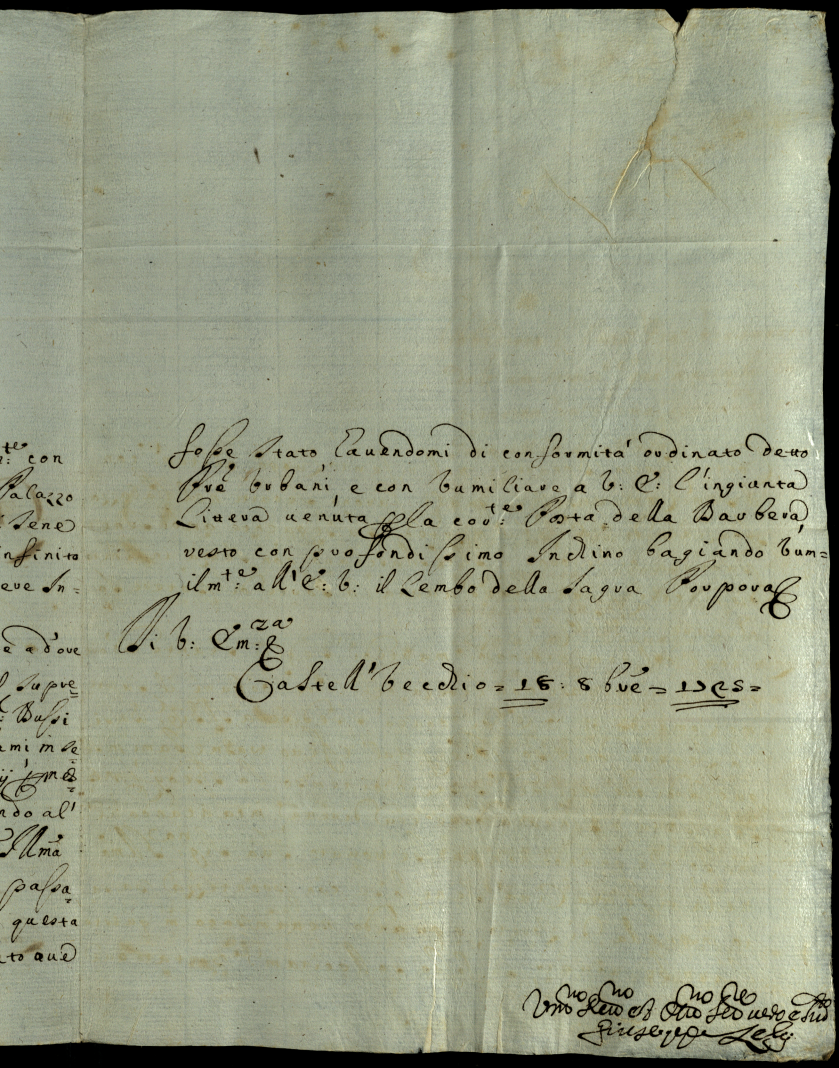 n:te con
Palazzo
Sene
infinito
eve In=
e a d'ove
Supre=
Bussi
ami in se=
ndo al'
Illmã
passa=
questa
to que
fosse stato havendomi di conformitá ordinato detto
Prẽ Urbani e con humiliare a V: E: l'ingiunta
Littera venuta p la cor:te Posta della Barbera,
resto con profondissimo Inchino bagiando hum=
ilm:te all'E: V: il Lembo della Sagra Porpora
Di V: Em:za
Castell'Vecchio = 18: 8brẽ = 1725 =
Giuseppe Lelij